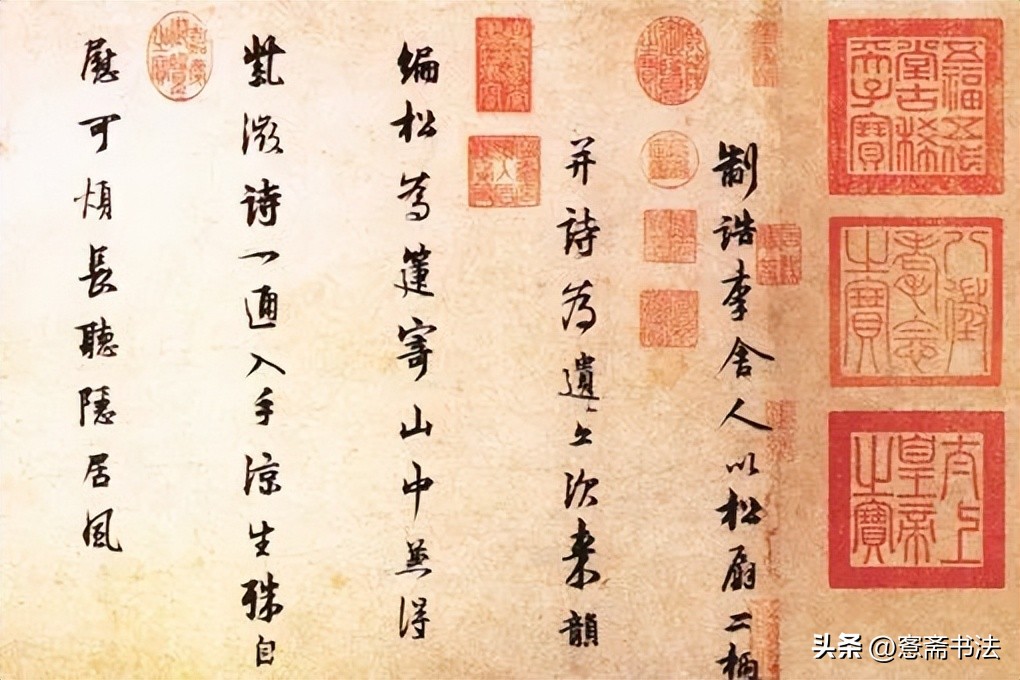 五福五代
堂古稀
天子寶
八徵
耄念
之寶
太上
皇帝
之寶
制誥李舍人以松扇二柄
并詩為遺亟次來韻
編松為箑寄山中兼得
紫微詩一通入手涼生殊自
慰可煩長聽隱居風
头条 @愙斋书法